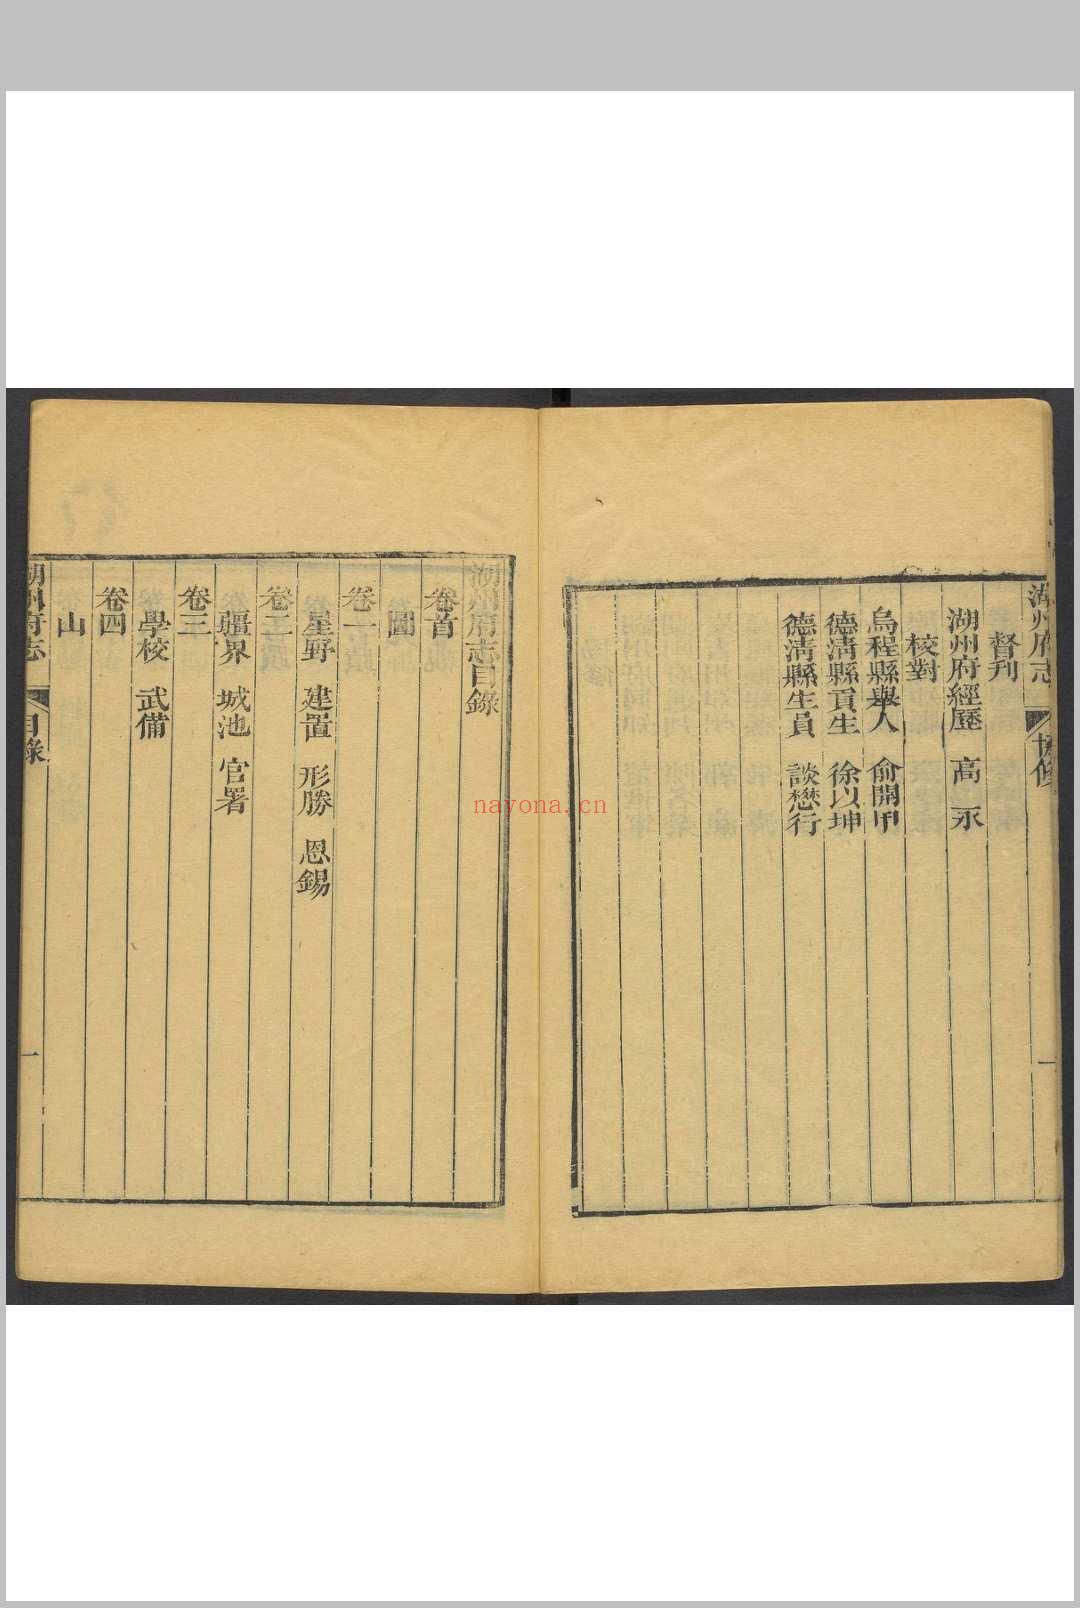 湖州府志
協修
一
督刋
湖州府經歷 高永
校對
烏程縣舉人 俞開甲
德淸縣貢生 徐以坤
德淸縣生員 談懋行
湖州府志目錄
卷首
圖
卷一
星野 建置 形勝 恩錫
卷二
疆界 城池 官署
卷三
學校 武備
卷四
山
湖州府志
目錄
一
nayona.cn